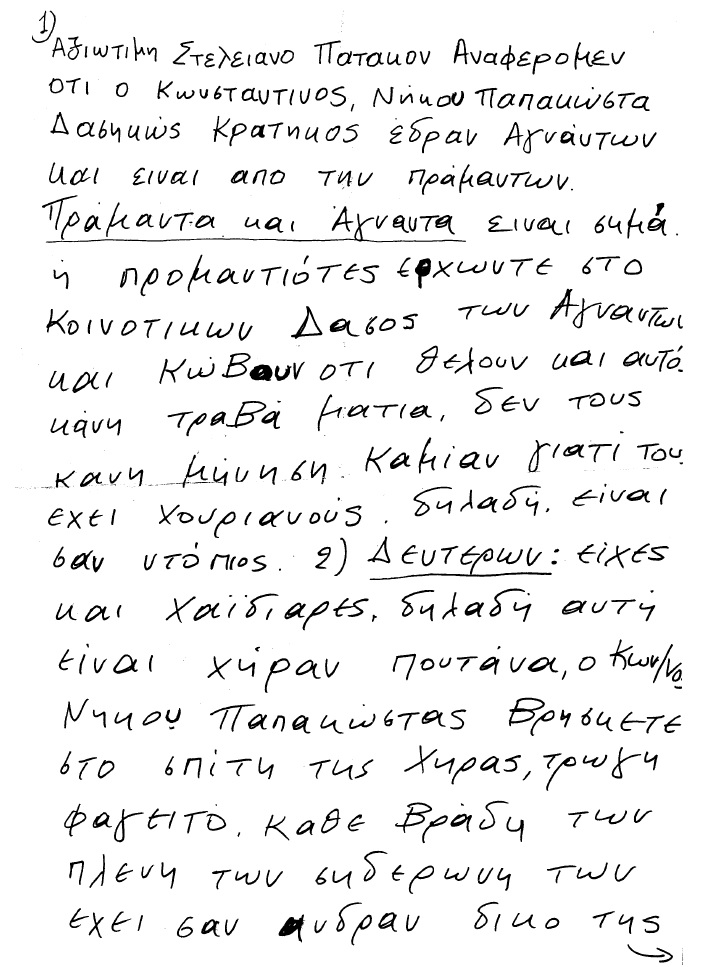 1)
Αξιωτιμη Στελειανο Πατακον Αναφερομεν
οτι ο Κωνσταντινος, Νήκου Παπακώστα
Δασηκώς Κρατηκος έδραν Αγνάντων
και ειναι απο την πράμαντων.
Πράμαντα και Άγναντα ειναι σημά.
ή προμαντιότες ερχωντε στο
Κοινοτικων Δασος των Αγναντων
και Κώβουν οτι θελουν και αυτό.
κάνη τραβά ματια, δεν τους
κανη μήνηση καμίαν γιατί του.
εχει χουριανούς. δηλαδή. είναι
σαν ντόπιος. 2) Δευτερων: είχες
και Χαϊδιαρες. δηλαδή αυτή
είναι χήραν πουτάνα, ο Κων/νο.
Νηκου Παπακώστας Βρησκετε
στο σπίτη της Χηρας, τρωγη
φαγειτό. καθε Βράδη των
πλενη των σηδερωνη των
εχει σαν ανδραν δικο της